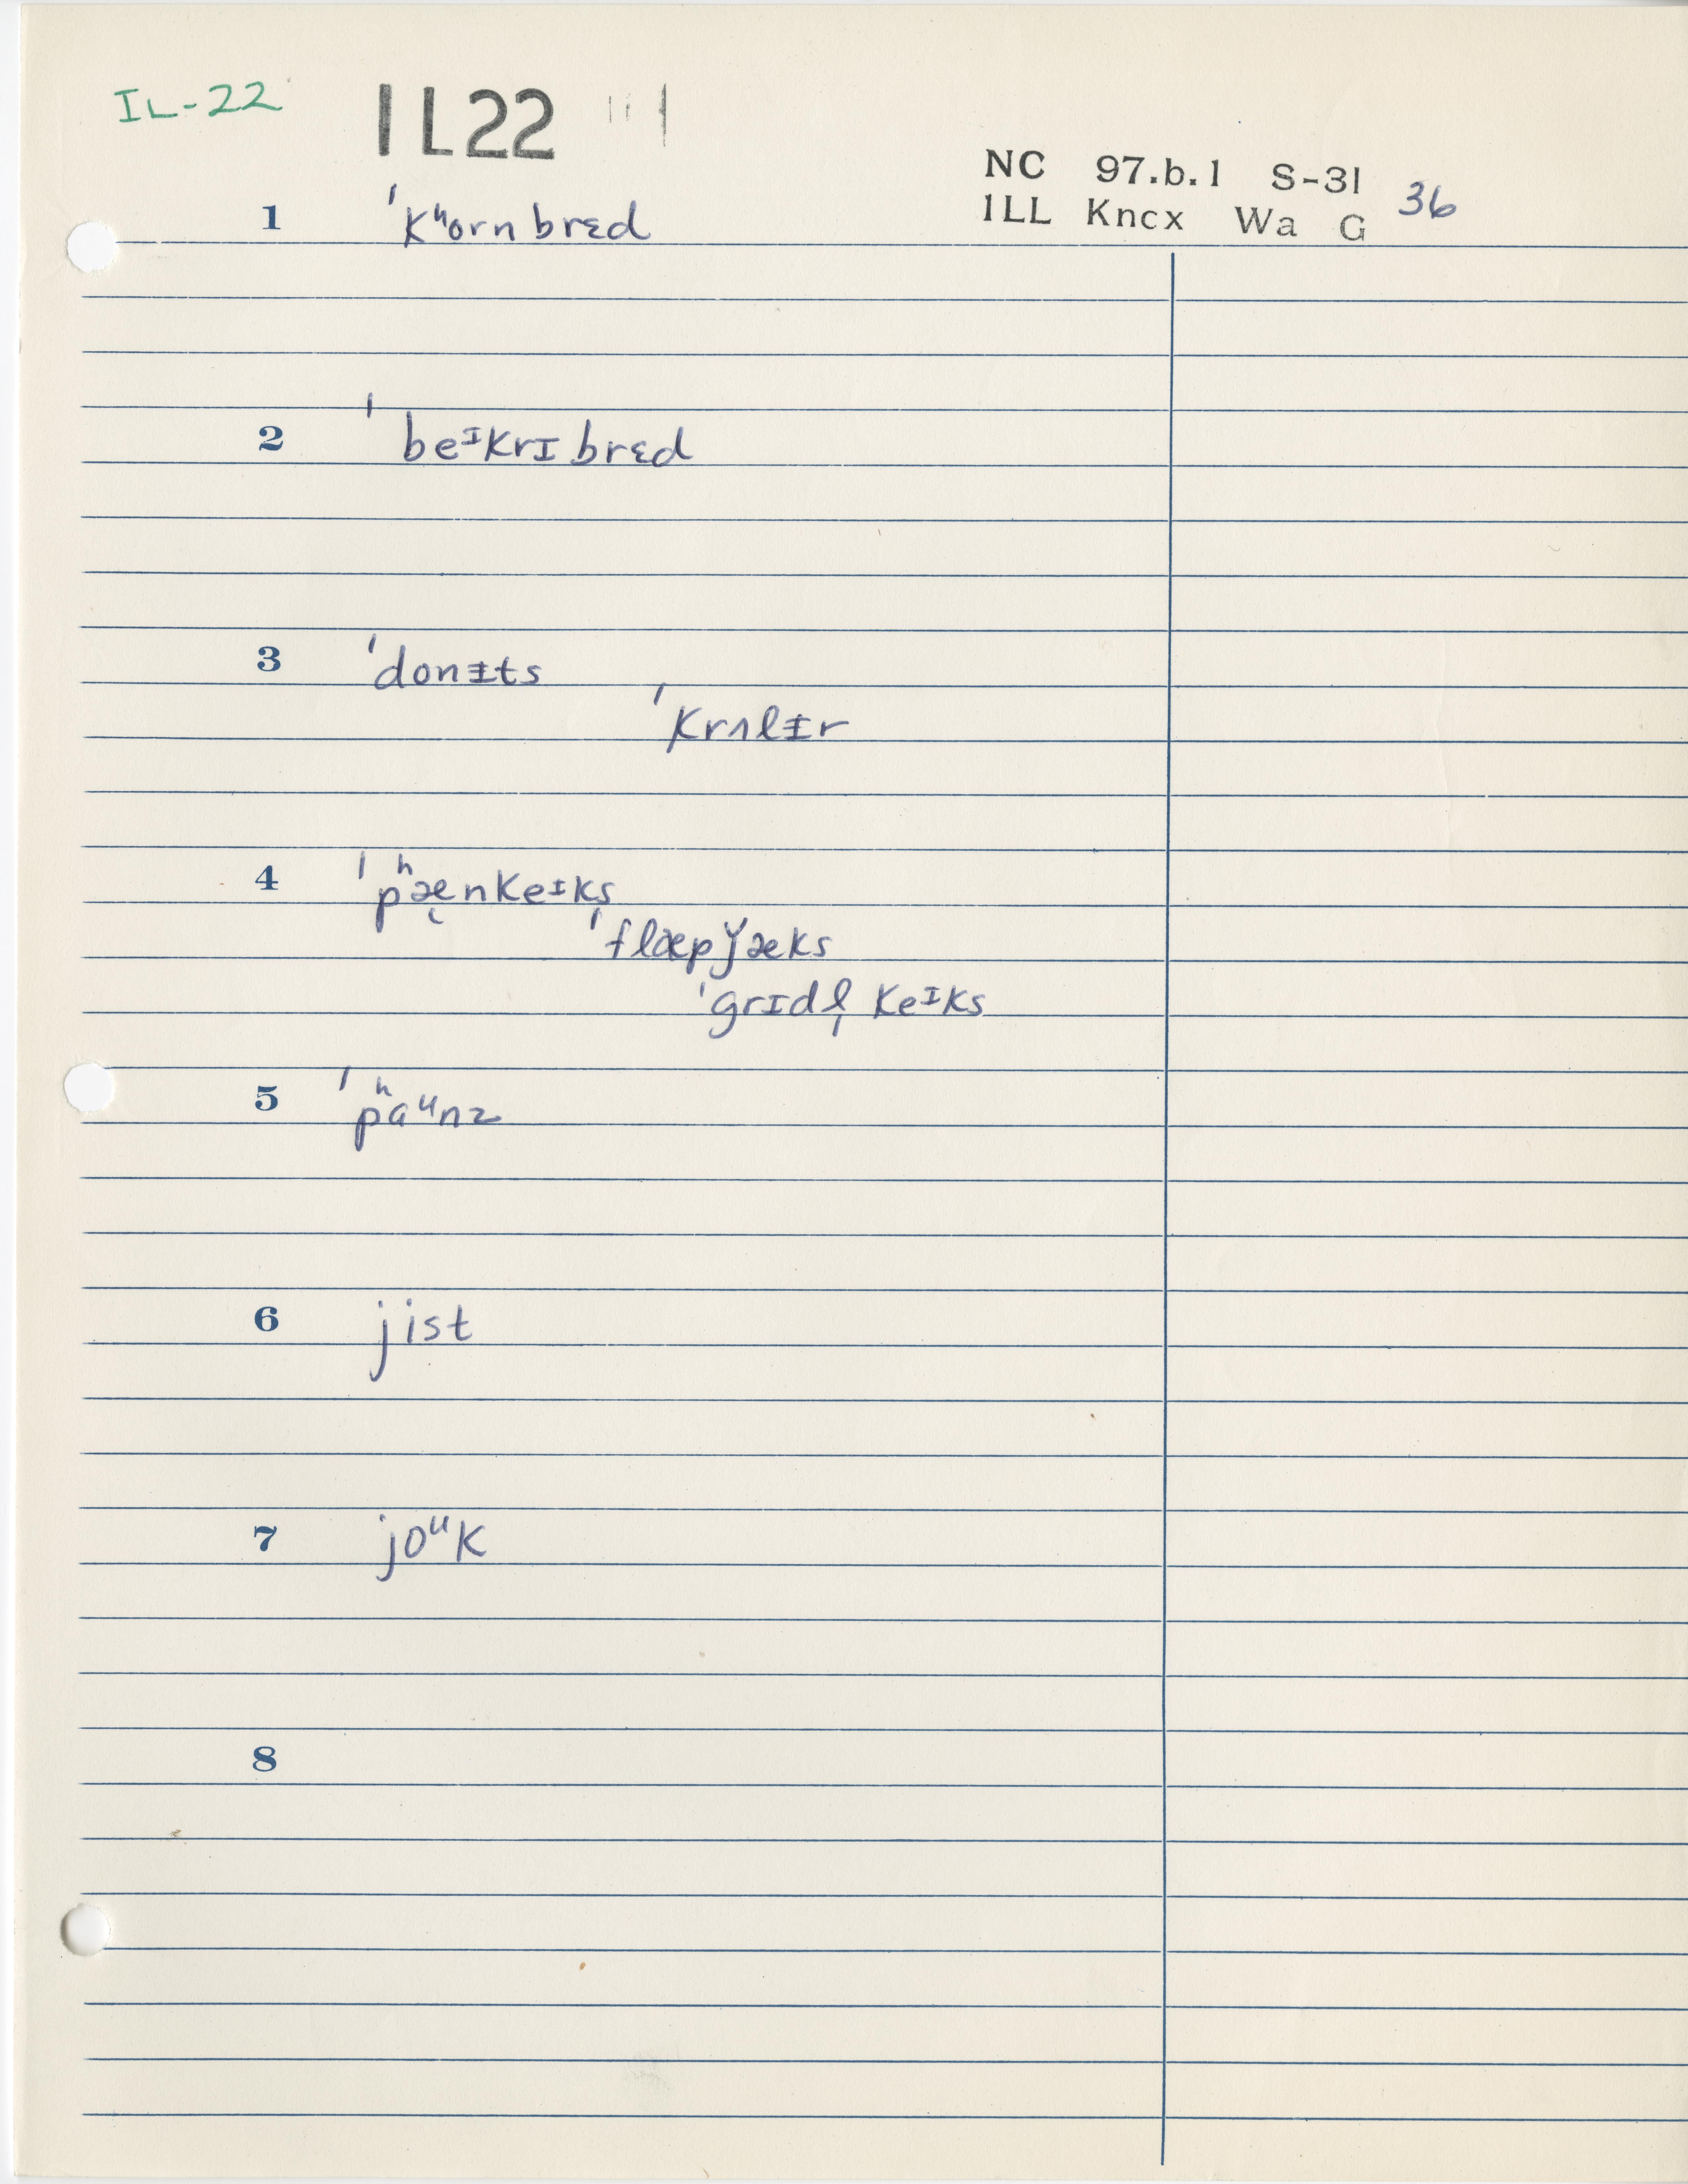 IL-22 IL22
NC 97.b.1 S-31 36
ILL Kncx Wa G
1 ˈkʰorn brɛd
2 ˈbeᶦkrɪ brɛd
3 ˈdonᵻts
ˈkrʌlᵻr
4 ˈpʰæ̨nkeᶦks
ˈflæpǰæks
ˈgrɪdl̩ keᶦks
5 ˈpʰaᵘnz
6 jist
7 joᵘk
8